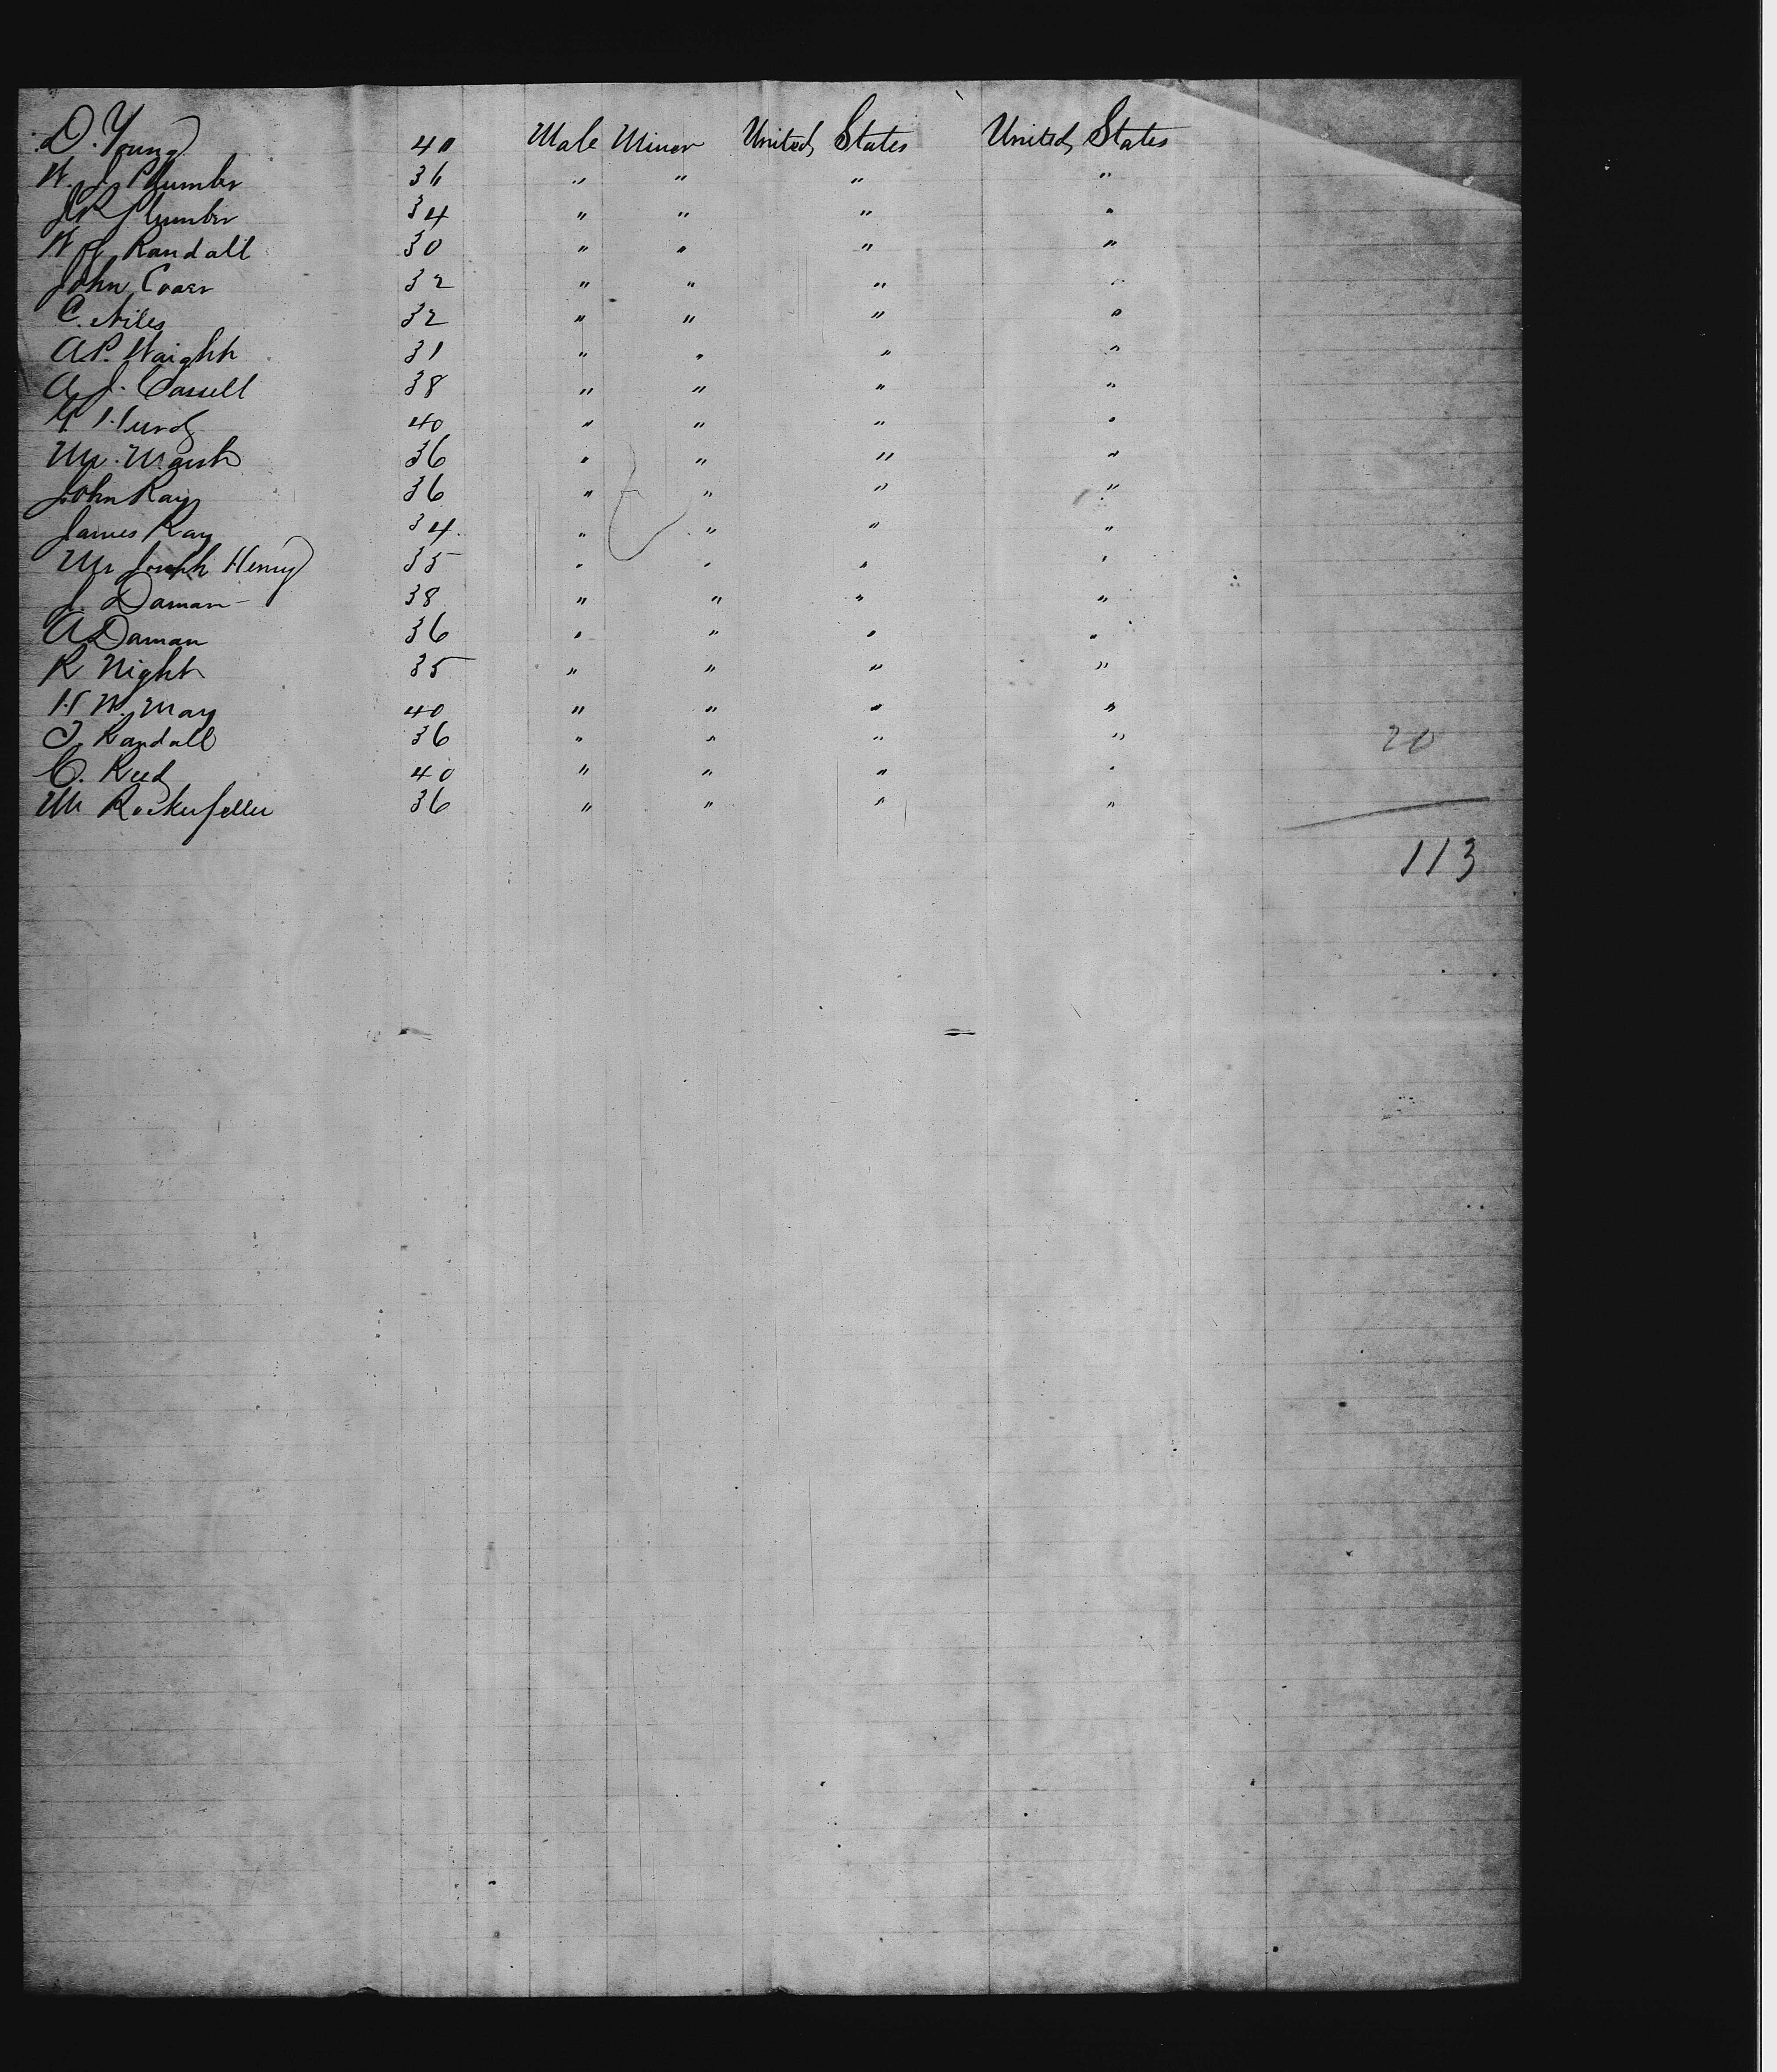 D. Young 40 Male Minor United States United States
W. J. Plumber 36 " " " "
J R Plumber 34 " " " "
W H Randall 30 " " " "
John 32 " " " "
C. Niles 32 " " " "
A P. Waight 31 " " " "
A J. Cassell 38 " " " "
Hurd 40 " " " "
Mr. Marsh 36 " " " "
John Ray 36 " " " "
James Ray 34 " " " "
Mr Joseph Henry 35 " " " "
J. Daman 38 " " " "
A Daman 36 " " " "
R Night 35 " " " "
H W. May 40 " " " "
J. Randall 36 " " " " 20
C. Reed 40 " " " "
Mr Rockerfeller 36 " " " "
113